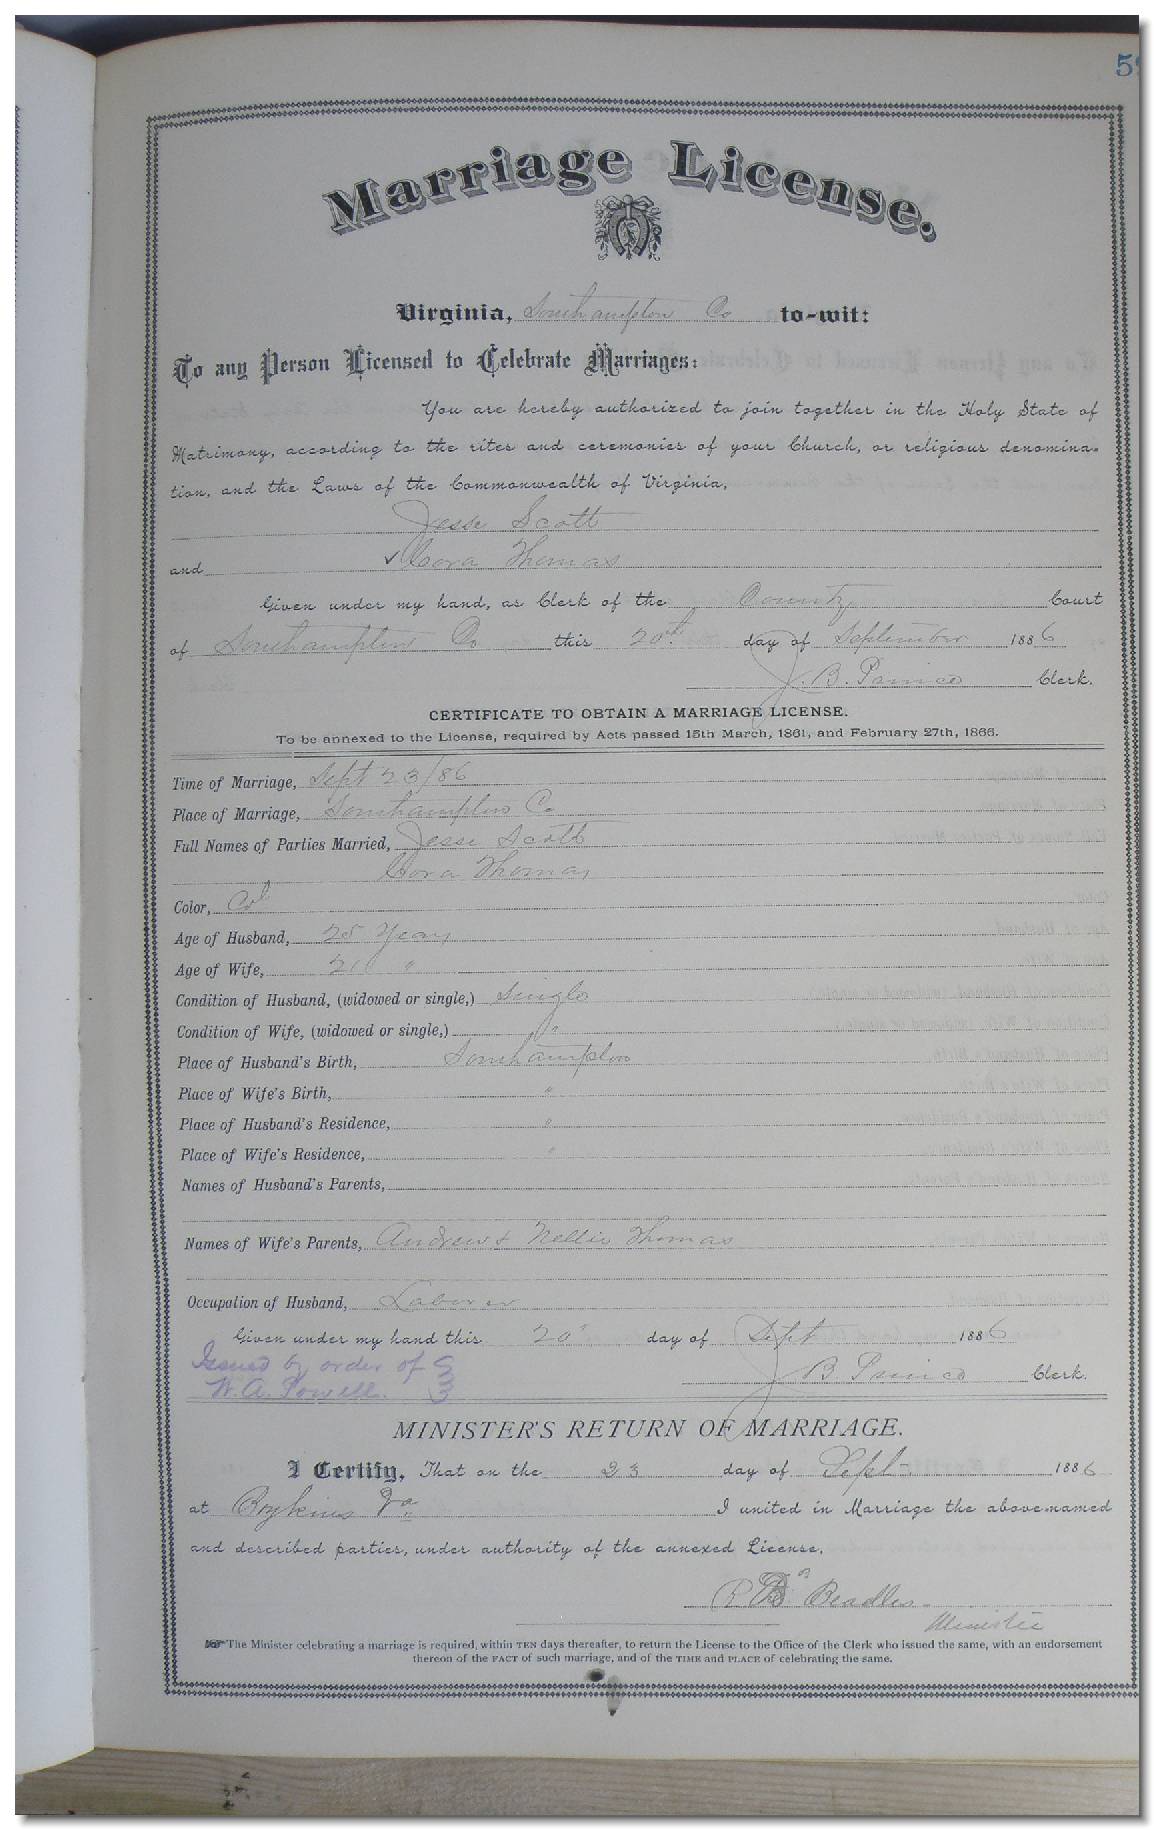 Marriage License.
Virginia, Southampton Co to-wit:
To any Person Licensed to Celebrate Marriages:
You are hereby authorized to join together in the Holy State of
Matrimony, according to the rites and ceremonies of your Church, or religious denomina-
tion, and the Laws of the Commonwealth of Virginia,
Jesse Scott
and ✓ Cora Thomas
Given under my hand, as Clerk of the County Court
of Southampton Co this 20th day of September 1886
J. B. Clerk.
CERTIFICATE TO OBTAIN A MARRIAGE LICENSE.
To be annexed to the License, required by Acts passed 15th March, 1861, and February 27th, 1866.
Time of Marriage, Sept 23/86
Place of Marriage, Southampton Co
Full Names of Parties Married, Jesse Scott
Cora Thomas
Color, Col
Age of Husband, 25 Years
Age of Wife, 21 "
Condition of Husband, (widowed or single,) Single
Condition of Wife, (widowed or single,) "
Place of Husband's Birth, Southampton
Place of Wife's Birth, "
Place of Husband's Residence, "
Place of Wife's Residence, "
Names of Husband's Parents,
Names of Wife's Parents, Andrew & Nellie Thomas
Occupation of Husband, Laborer
Given under my hand this 20" day of Sept 1886
Issued by order of
W. A. Powell.
J B. Clerk.
MINISTER'S RETURN OF MARRIAGE.
I Certify, That on the 23 day of Sept 1886
at Boykins Va I united in Marriage the above-named
and described parties, under authority of the annexed License.
R Beadles
Minister
The Minister celebrating a marriage is required, within TEN days thereafter, to return the License to the Office of the Clerk who issued the same, with an endorsement
thereon of the FACT of such marriage, and of the TIME and PLACE of celebrating the same.